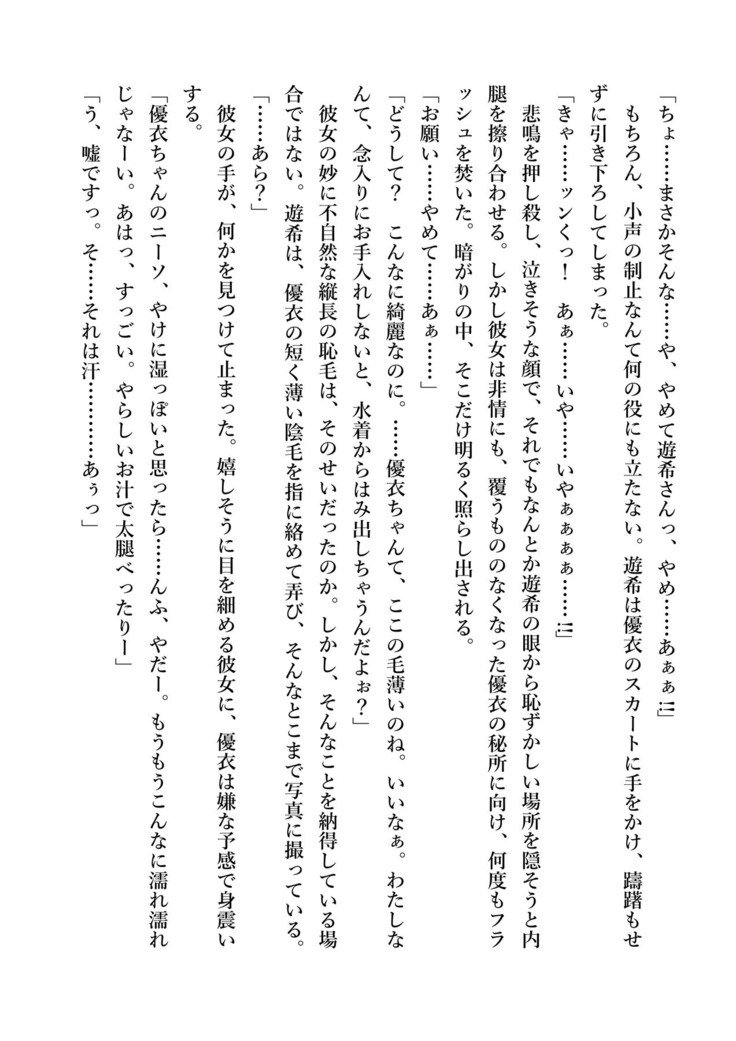 「ちょ……まさかそんな……や、やめて遊希さんっ、やめ……あぁぁ!!」
もちろん、小声の制止なんて何の役にも立たない。遊希は優衣のスカートに手をかけ、躊躇もせ
ずに引き下ろしてしまった。
「きゃ……ッンくっ！　あぁ……いや……いやぁぁぁぁ……!!」
悲鳴を押し殺し、泣きそうな顔で、それでもなんとか遊希の眼から恥ずかしい場所を隠そうと内
腿を擦り合わせる。しかし彼女は非情にも、覆うもののなくなった優衣の秘所に向け、何度もフラ
ッシュを焚いた。暗がりの中、そこだけ明るく照らし出される。
「お願い……やめて……あぁ……」
「どうして？　こんなに綺麗なのに。……優衣ちゃんて、ここの毛薄いのね。いいなぁ。わたしな
んて、念入りにお手入れしないと、水着からはみ出しちゃうんだよぉ？」
彼女の妙に不自然な縦長の恥毛は、そのせいだったのか。しかし、そんなことを納得している場
合ではない。遊希は、優衣の短く薄い陰毛を指に絡めて弄び、そんなとこまで写真に撮っている。
「……あら？」
彼女の手が、何かを見つけて止まった。嬉しそうに目を細める彼女に、優衣は嫌な予感で身震い
する。
「優衣ちゃんのニーソ、やけに湿っぽいと思ったら……んふ、やだー。もうもうこんなに濡れ濡れ
じゃなーい。あはっ、すっごい。やらしいお汁で太腿べったりー」
「う、嘘ですっ。そ……それは汗…………あぅっ」